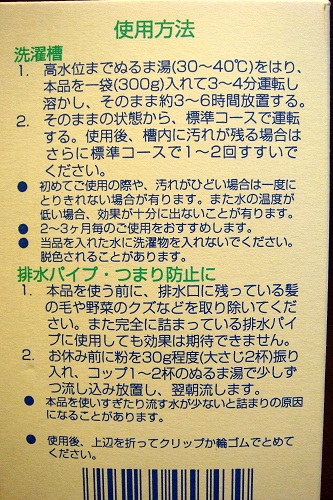 使用方法
洗濯槽
1. 高水位までぬるま湯(30〜40℃)をはり、
本品を一袋(300g)入れて3〜4分運転し
溶かし、そのまま約3〜6時間放置する。
2. そのままの状態から、標準コースで運転
する。使用後、槽内に汚れが残る場合は
さらに標準コースで1〜2回すすいで
ください。
● 初めてご使用の際や、汚れがひどい場合は一度に
とりきれない場合が有ります。また水の温度が
低い場合、効果が十分に出ないことが有ります。
● 2〜3ヶ月毎のご使用をおすすめします。
● 当品を入れた水に洗濯物を入れないでください。
脱色されることがあります。
排水パイプ・つまり防止に
1. 本品を使う前に、排水口に残っている髪
の毛や野菜のクズなどを取り除いてくだ
さい。また完全に詰まっている排水パイ
プに使用しても効果は期待できません。
2. お休み前に粉を30g程度(大さじ2杯)振り
入れ、コップ1〜2杯のぬるま湯で少しず
つ流し込み放置し、翌朝流します。
● 本品を使いすぎたり流す水が少ないと詰まりの原因
になることがあります。
● 使用後、上辺を折ってクリップか輪ゴムでとめて
ください。